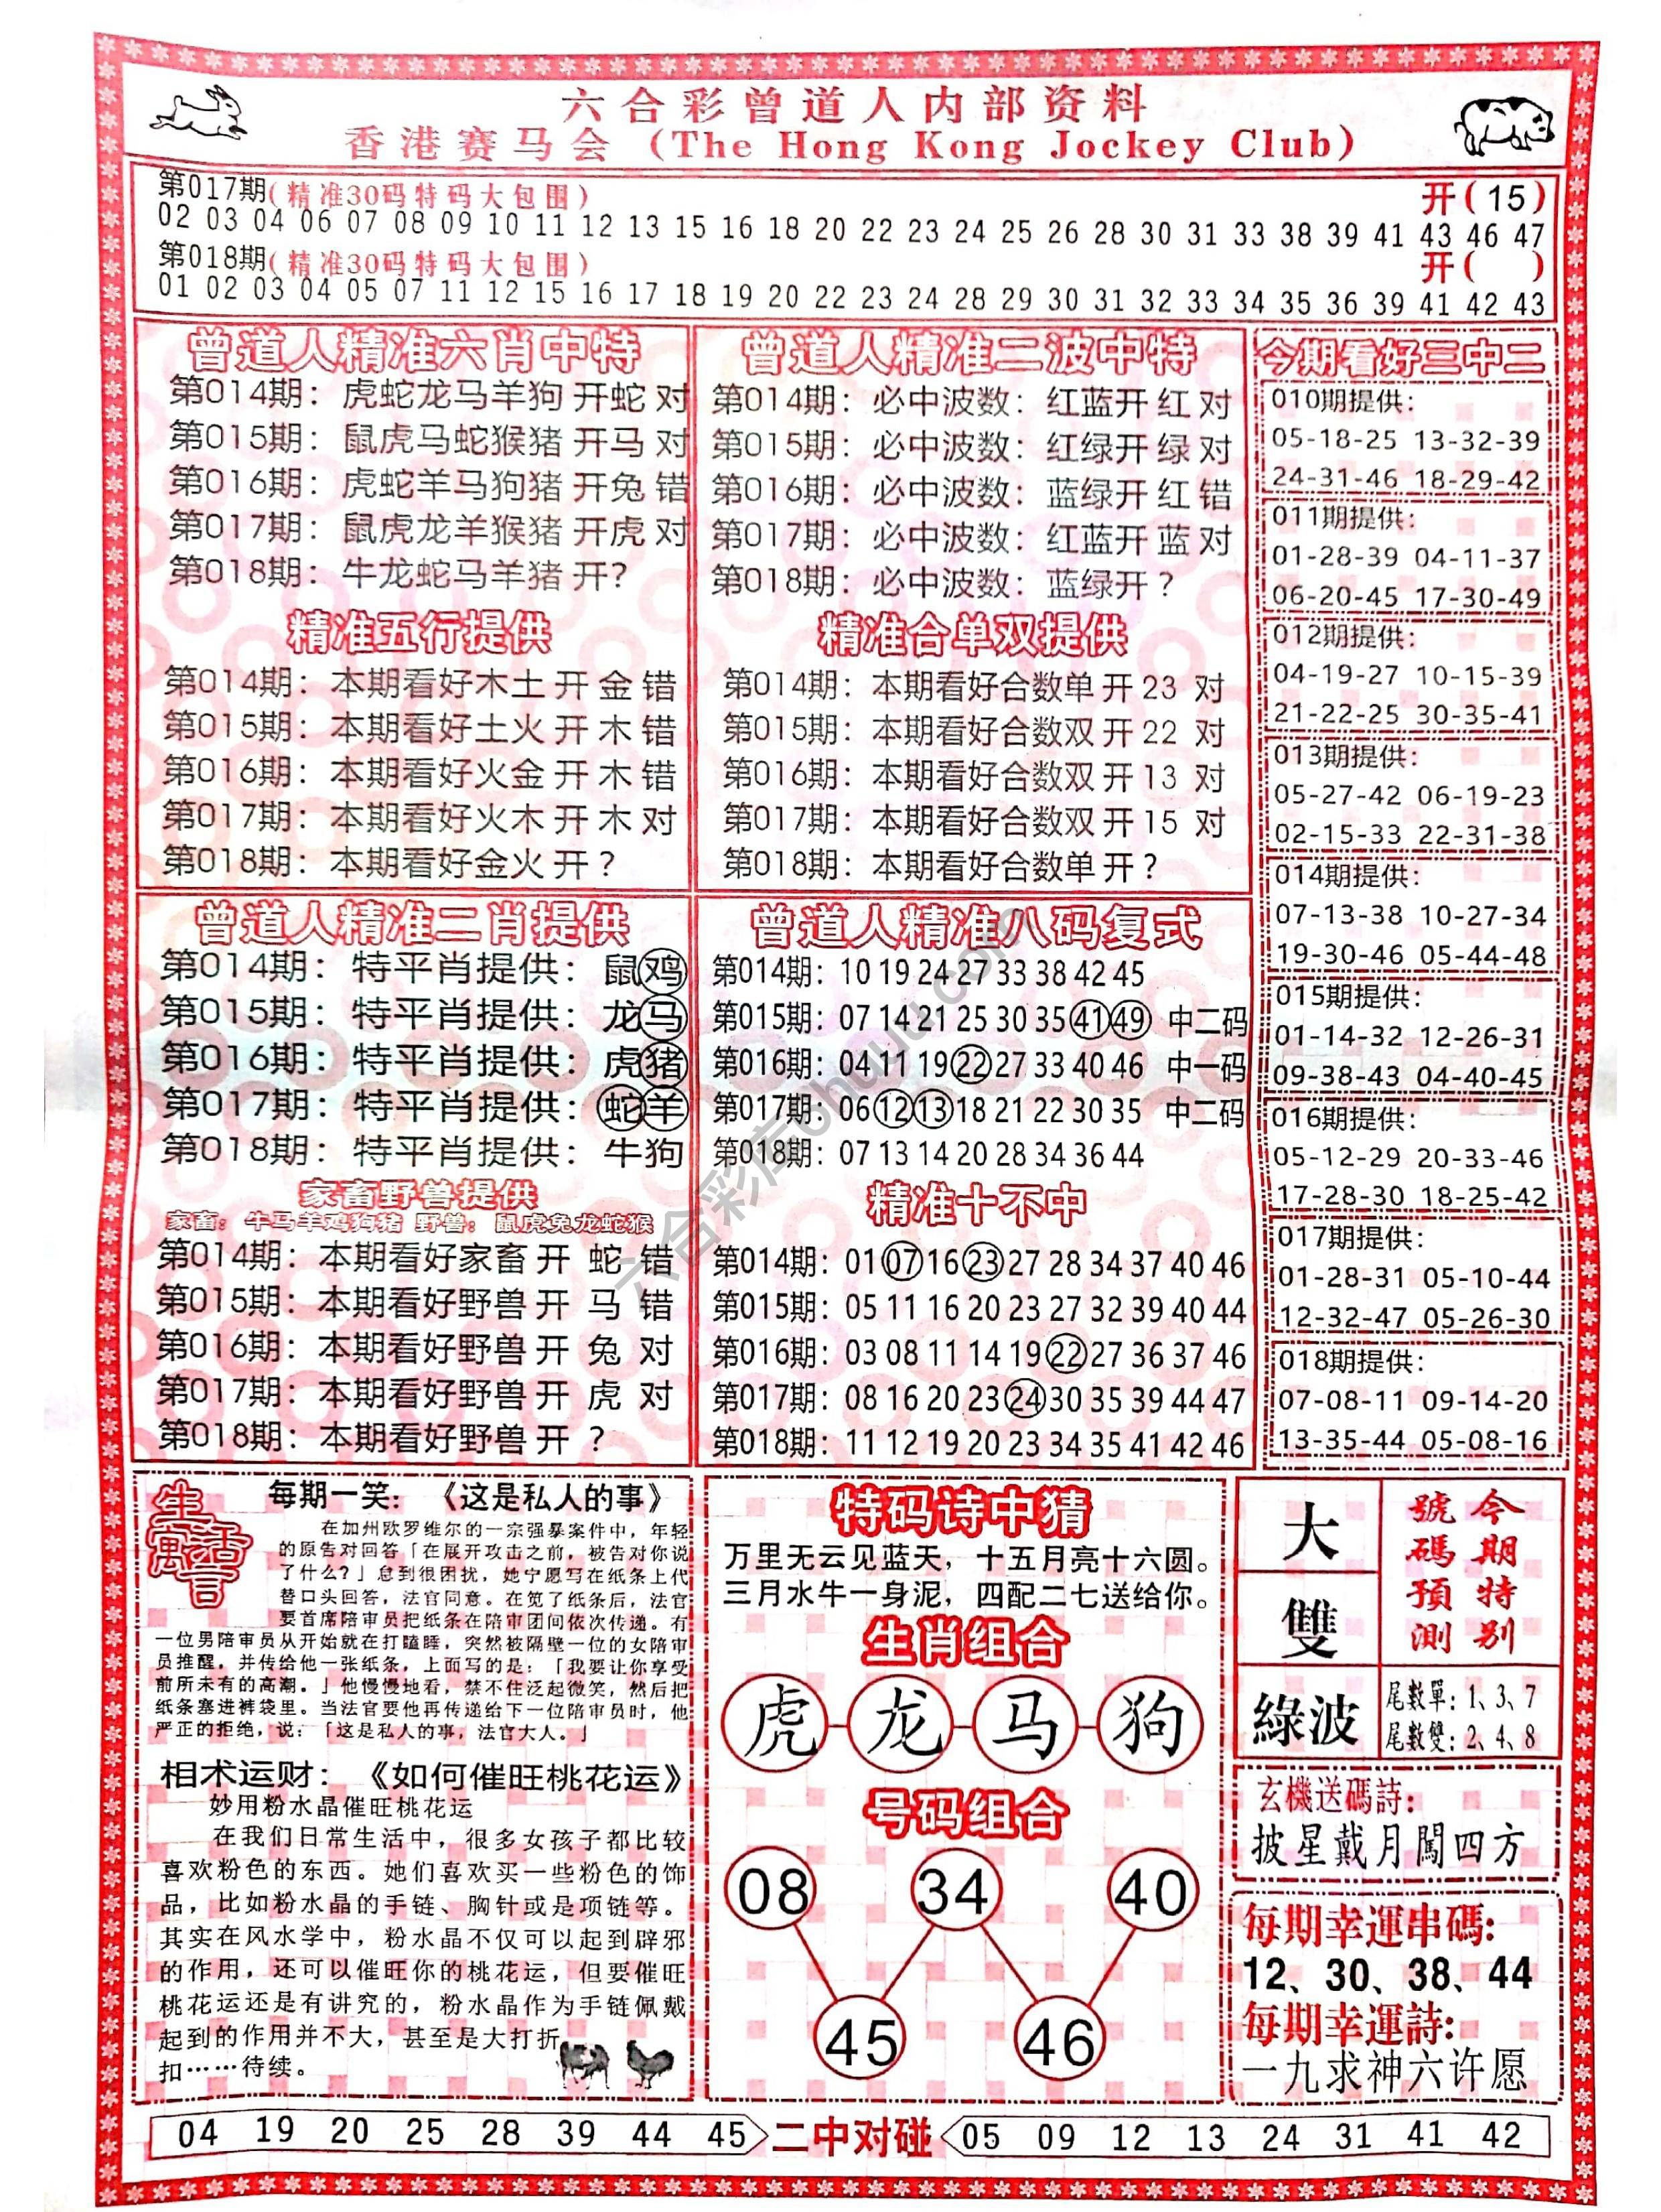 六合彩曾道人内部资料
香港赛马会 (The Hong Kong Jockey Club)
第017期(精准30码特码大包围) 开(15)
02 03 04 06 07 08 09 10 11 12 13 15 16 18 20 22 23 24 25 26 28 30 31 33 38 39 41 43 46 47
第018期(精准30码特码大包围) 开( )
01 02 03 04 05 07 11 12 15 16 17 18 19 20 22 23 24 28 29 30 31 32 33 34 35 36 39 41 42 43
曾道人精准六肖中特
第014期：虎蛇龙马羊狗 开蛇 对
第015期：鼠虎马蛇猴猪 开马 对
第016期：虎蛇羊马狗猪 开兔 错
第017期：鼠虎龙羊猴猪 开虎 对
第018期：牛龙蛇马羊猪 开?
精准五行提供
第014期：本期看好木土 开 金 错
第015期：本期看好土火 开 木 错
第016期：本期看好火金 开 木 错
第017期：本期看好火木 开 木 对
第018期：本期看好金火 开 ?
曾道人精准二波中特
第014期：必中波数：红蓝开 红 对
第015期：必中波数：红绿开 绿 对
第016期：必中波数：蓝绿开 红 错
第017期：必中波数：红蓝开 蓝 对
第018期：必中波数：蓝绿开 ?
精准合单双提供
第014期：本期看好合数单 开 23 对
第015期：本期看好合数双 开 22 对
第016期：本期看好合数双 开 13 对
第017期：本期看好合数双 开 15 对
第018期：本期看好合数单 开 ?
今期看好三中二
010期提供：
05-18-25 13-32-39
24-31-46 18-29-42
011期提供：
01-28-39 04-11-37
06-20-45 17-30-49
012期提供：
04-19-27 10-15-39
21-22-25 30-35-41
013期提供：
05-27-42 06-19-23
02-15-33 22-31-38
014期提供：
07-13-38 10-27-34
19-30-46 05-44-48
015期提供：
01-14-32 12-26-31
09-38-43 04-40-45
016期提供：
05-12-29 20-33-46
17-28-30 18-25-42
017期提供：
01-28-31 05-10-44
12-32-47 05-26-30
018期提供：
07-08-11 09-14-20
13-35-44 05-08-16
曾道人精准二肖提供
第014期：特平肖提供：鼠鸡
第015期：特平肖提供：龙马
第016期：特平肖提供：虎猪
第017期：特平肖提供：蛇羊
第018期：特平肖提供：牛狗
家畜野兽提供
家畜：牛马羊鸡狗猪 野兽：鼠虎兔龙蛇猴
第014期：本期看好家畜 开 蛇 错
第015期：本期看好野兽 开 马 错
第016期：本期看好野兽 开 兔 对
第017期：本期看好野兽 开 虎 对
第018期：本期看好野兽 开 ?
曾道人精准八码复式
第014期：10 19 24 27 33 38 42 45
第015期：07 14 21 25 30 35 41 49 中二码
第016期：04 11 19 22 27 33 40 46 中一码
第017期：06 12 13 18 21 22 30 35 中二码
第018期：07 13 14 20 28 34 36 44
精准十不中
第014期：01 07 16 23 27 28 34 37 40 46
第015期：05 11 16 20 23 27 32 39 40 44
第016期：03 08 11 14 19 22 27 36 37 46
第017期：08 16 20 23 24 30 35 39 44 47
第018期：11 12 19 20 23 34 35 41 42 46
生活寓言
每期一笑：《这是私人的事》
在加州欧罗维尔的一宗强暴案件中，年轻
的原告对回答「在展开攻击之前，被告对你说
了什么?」怠到很困扰，她宁愿写在纸条上代
替口头回答，法官同意。在笕了纸条后，法官
要首席陪审员把纸条在陪审团间依次传递。有
一位男陪审员从开始就在打瞌睡，突然被隔壁一位的女陪审
员推醒，并传给他一张纸条，上面写的是：「我要让你享受
前所未有的高潮。」他慢慢地看，禁不住泛起微笑，然后把
纸条塞进裤袋里。当法官要他再传递给下一位陪审员时，他
严正的拒绝，说：「这是私人的事，法官大人。」
相术运财：《如何催旺桃花运》
妙用粉水晶催旺桃花运
在我们日常生活中，很多女孩子都比较
喜欢粉色的东西。她们喜欢买一些粉色的饰
品，比如粉水晶的手链、胸针或是项链等。
其实在风水学中，粉水晶不仅可以起到辟邪
的作用，还可以催旺你的桃花运，但要催旺
桃花运还是有讲究的，粉水晶作为手链佩戴
起到的作用并不大，甚至是大打折
扣……待续。
特码诗中猜
万里无云见蓝天，十五月亮十六圆。
三月水牛一身泥，四配二七送给你。
生肖组合
虎 龙 马 狗
号码组合
08 34 40
45 46
今期特别號碼預測
大
雙
綠波
尾數單：1、3、7
尾數雙：2、4、8
玄機送碼詩：
披星戴月闖四方
每期幸運串碼:
12、30、38、44
每期幸運詩:
一九求神六许愿
04 19 20 25 28 39 44 45 二中对碰 05 09 12 13 24 31 41 42